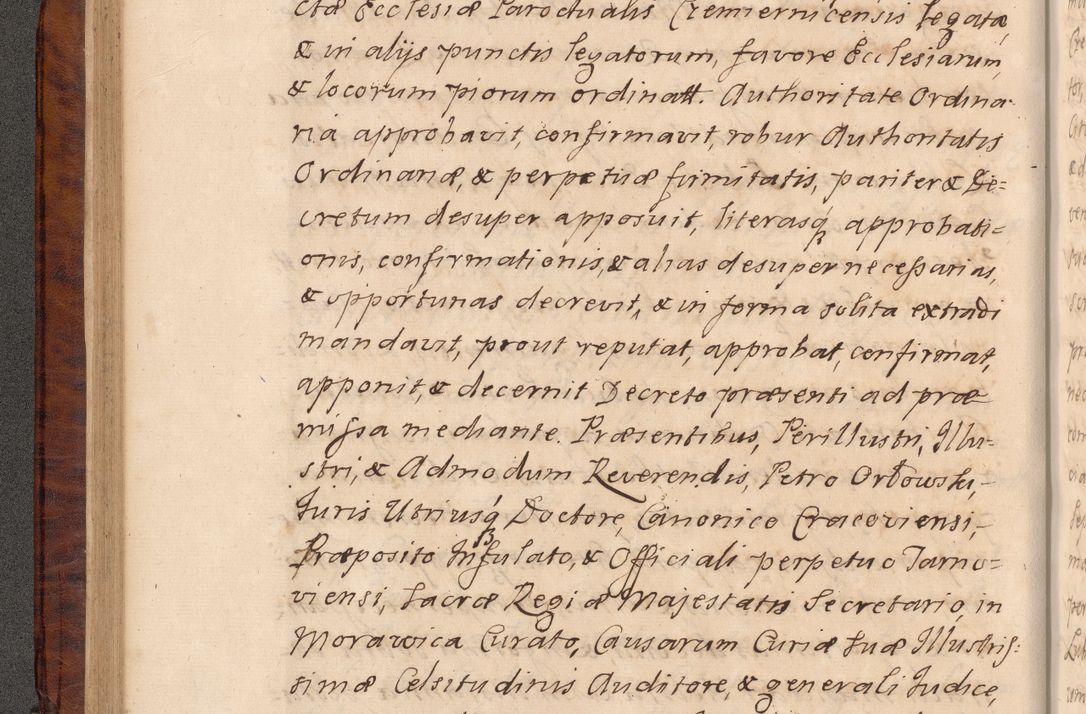 ctæ Ecclesiæ Paroctualis Cremiernicensis legata,
& in alijs punctis legatorum, favore Ecclesiarum,
& locorum piorum ordinatt. Authoritate Ordina-
ria approbavit, confirmavit, robur Authoritatis
Ordinanæ, & perpetuæ firmitatis, pariter & De=
cretum desuper apposuit, literasq́ approbati=
onis, confirmationis, & alias desuper necessarias,
& opportunas decrevit, & in forma solita extradi
mandavit, prout reputat, approbat, confirmat,
apponit, & decernit Decreto præsenti ad præ=
missa mediante. Præsentibus, Perillustri, Illu=
stri, & Admodum Reverendis, Petro Orłowski,
Juris Utriusq́ Doctore, Canonico Cracoviensi,
Præposito Infulato, & Officiali perpetuo Tarno=
viensi, Sacræ Regiæ Majestatis Secretario, in
Morawica Curato, Causarum Curiæ Suæ Illustris=
simæ Celsitudinis Auditore, & generali Judice,